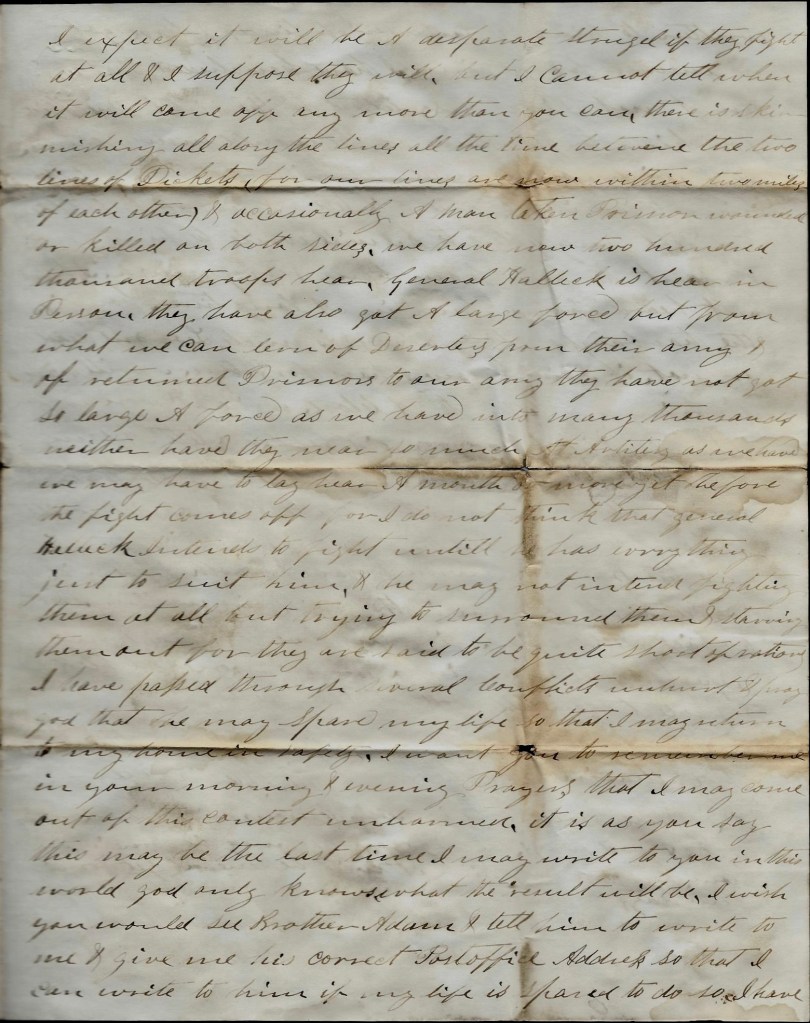 I expect it will be A desparate strugel if they fight
at all & I suppose they will, but I cannot tell when
it will come off any more than you can, there is skir
mishing all along the lines all the time betwene the two
lines of Pickets, (for our lines are now within two miles
of each other) & occasionally A man taken Prisnor wounded
or killed on both sides, we have now two hundred
thousand troops hear, General Halleck is hear in
Person, they have also got A large force but from
what we can lern of Deserters from their army &
of returned Prisnors to our army they have not got
so large A force as we have into many thousands
neither have they near so much Artilery as we have
we may have to lay hear A month or more yet before
the fight comes off, for I do not think that general
Halleck Intends to fight untill he has evrything
just to suit him, & he may not intend fighting
them at all but trying to surround them & starving
them out for they are said to be quite short of rations
I have passed through several Conflicts unhurt & pray
god that he may spare my life so that I may return
to my home in safety, I want you to remember me
in your morning & evening Prayers that I may come
out of this contest unharmed, it is as you say
this may be the last time I may write to you in this
world god only knows what the result will be, I wish
you would see Brother Adam & tell him to write to
me & give me his correct Postoffice Address so that I
can write to him if my life is spared to do so, I have